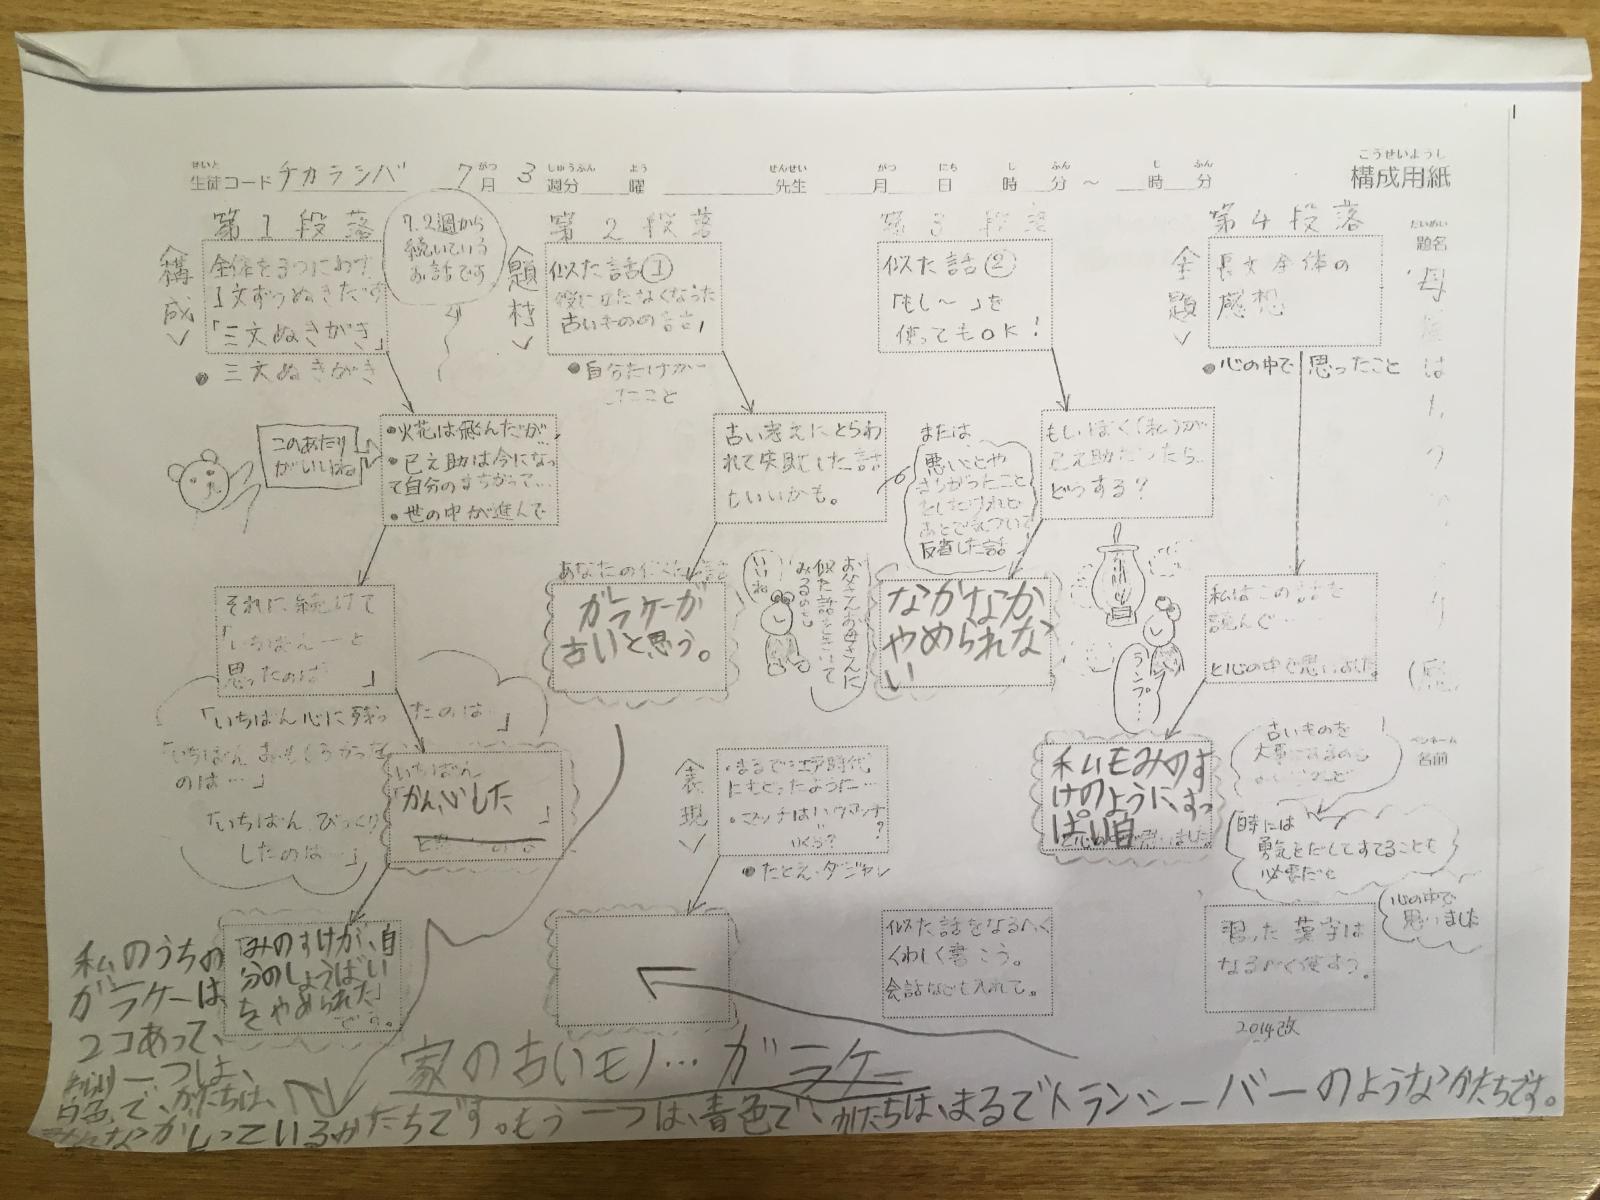 こうせいようし
構成用紙
せいと
生徒コード チカラシバ 7月 3週分 曜
がつ しゅうぶん よう
せんせい がつ にち じ ふん じ ふん
先生 月 日 時 分 ～ 時 分
だいめい
題名
ペンネーム
名前
第1段落
＜構成＞
全体を3つにわけ
1文ずつぬきだす
「三文ぬきがき」
●三文ぬきがき
7.2週から
続いている
お話です
このあたり
がいいね
●火花は飛んだが…
●巳之助は今になっ
て自分のまちがって…
●世の中が進んで
それに続けて
「いちばん～と
思ったのは 」
「いちばん心に残ったのは…」
「いちばんおもしろかった
のは…」
「いちばんびっくり
したのは…」
いちばん
「かん心した 」
「みのすけが、自
分のしょうばい
を、やめられた」
です。
第2段落
＜題材＞
似た話①
役に立たなくなった
古いものの話
●自分だけが
したこと
古い考えにとらわ
れて失敗した話
もいいかも。
あなたの似た話
ガラケーが
古いと思う。
いいね
お父さんお母さんに
似た話をきいて
みるのも
＜表現＞
・まるで江戸時代
にもどったように…
・マッチはハウマッチ
＝
いくら?
●たとえ・ダジャレ
第3段落
似た話②
「もし～」を
使ってもOK!
もしぼく（私）が
巳之助だったら、
どうする?
または、
悪いことや
まちがったこと
をしたけれど
あとで気づいて
反省した話
なかなか
やめられな
い
ランプ…
似た話をなるべく
くわしく書こう。
会話なども入れて。
第4段落
＜主題＞
長文全体の
感想
●心の中で思ったこと
私はこの話を
読んで…
と心の中で思いました。
私もみのす
けのように、すっ
ぱり自
と心の中で思いました。
古いものを
大事にするのも
時には
勇気をだしてすてることも
必要だと
心の中で
思いました
習った漢字は
なるべく使おう。
2014改
家の古いモノ…ガラケー
私のうちの
ガラケーは
2コあって、
一つは、
白色で、かたちは、
がしっているかたちです。もう一つは、青色で、かたちは、まるでトランシーバーのようなかたちです。